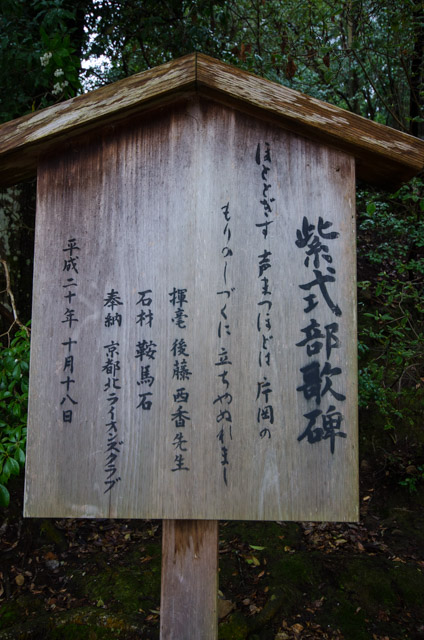 紫式部歌碑
ほととぎす 声まつほどは 片岡の
もりのしづくに 立ちやぬれまし
揮毫 後藤西香先生
石材 鞍馬石
奉納 京都北ライオンズクラブ
平成二十年 十月十八日